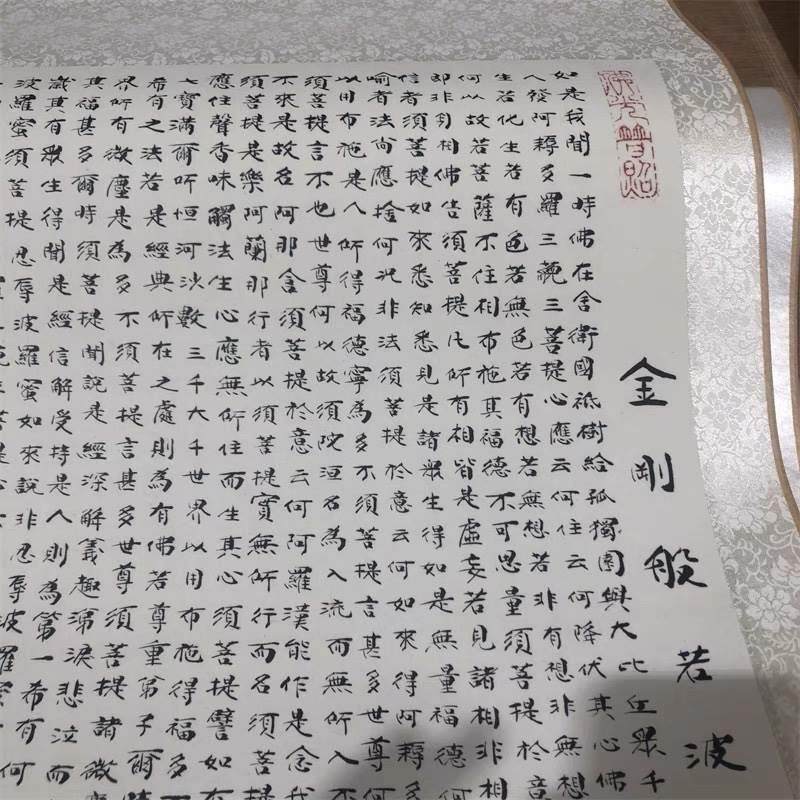 佛光普照
金剛般若波
如是我聞一時佛在舍衛國祇樹給孤獨園與大比丘眾千
人發阿耨多羅三藐三菩提心應云何住云何降伏其心佛
生若化生若有色若無色若有想若無想若非有想非無想
何以故若菩薩不住相布施其福德不可思量須菩提於意
即非身相佛告須菩提凡所有相皆是虛妄若見諸相非相
信者須菩提如來悉知悉見是諸眾生得如是無量福德何
喻者法尚應捨何況非法須菩提於意云何如來得阿耨多
以用布施是人所得福德寧為多不須菩提言甚多世尊何
須菩提言不也世尊何以故須陀洹名為入流而無所入不
不來是故名阿那含須菩提於意云何阿羅漢能作是念我
須菩提是樂阿蘭那行者以須菩提實無所行而名須菩
應住聲香味觸法生心應無所住而生其心須菩提譬如有
七寶滿爾所恒河沙數三千大千世界以用布施得福多
希有之法若是經典所在之處則為有佛若尊重弟子爾
界所有微塵是為多不須菩提言甚多世尊須菩提諸微
其福甚多爾時須菩提聞說是經深解義趣涕淚悲泣而
歲其有眾生得聞是經信解受持是人則為第一希有何
波羅蜜須菩提忍辱波羅蜜如來說非忍辱波羅蜜何